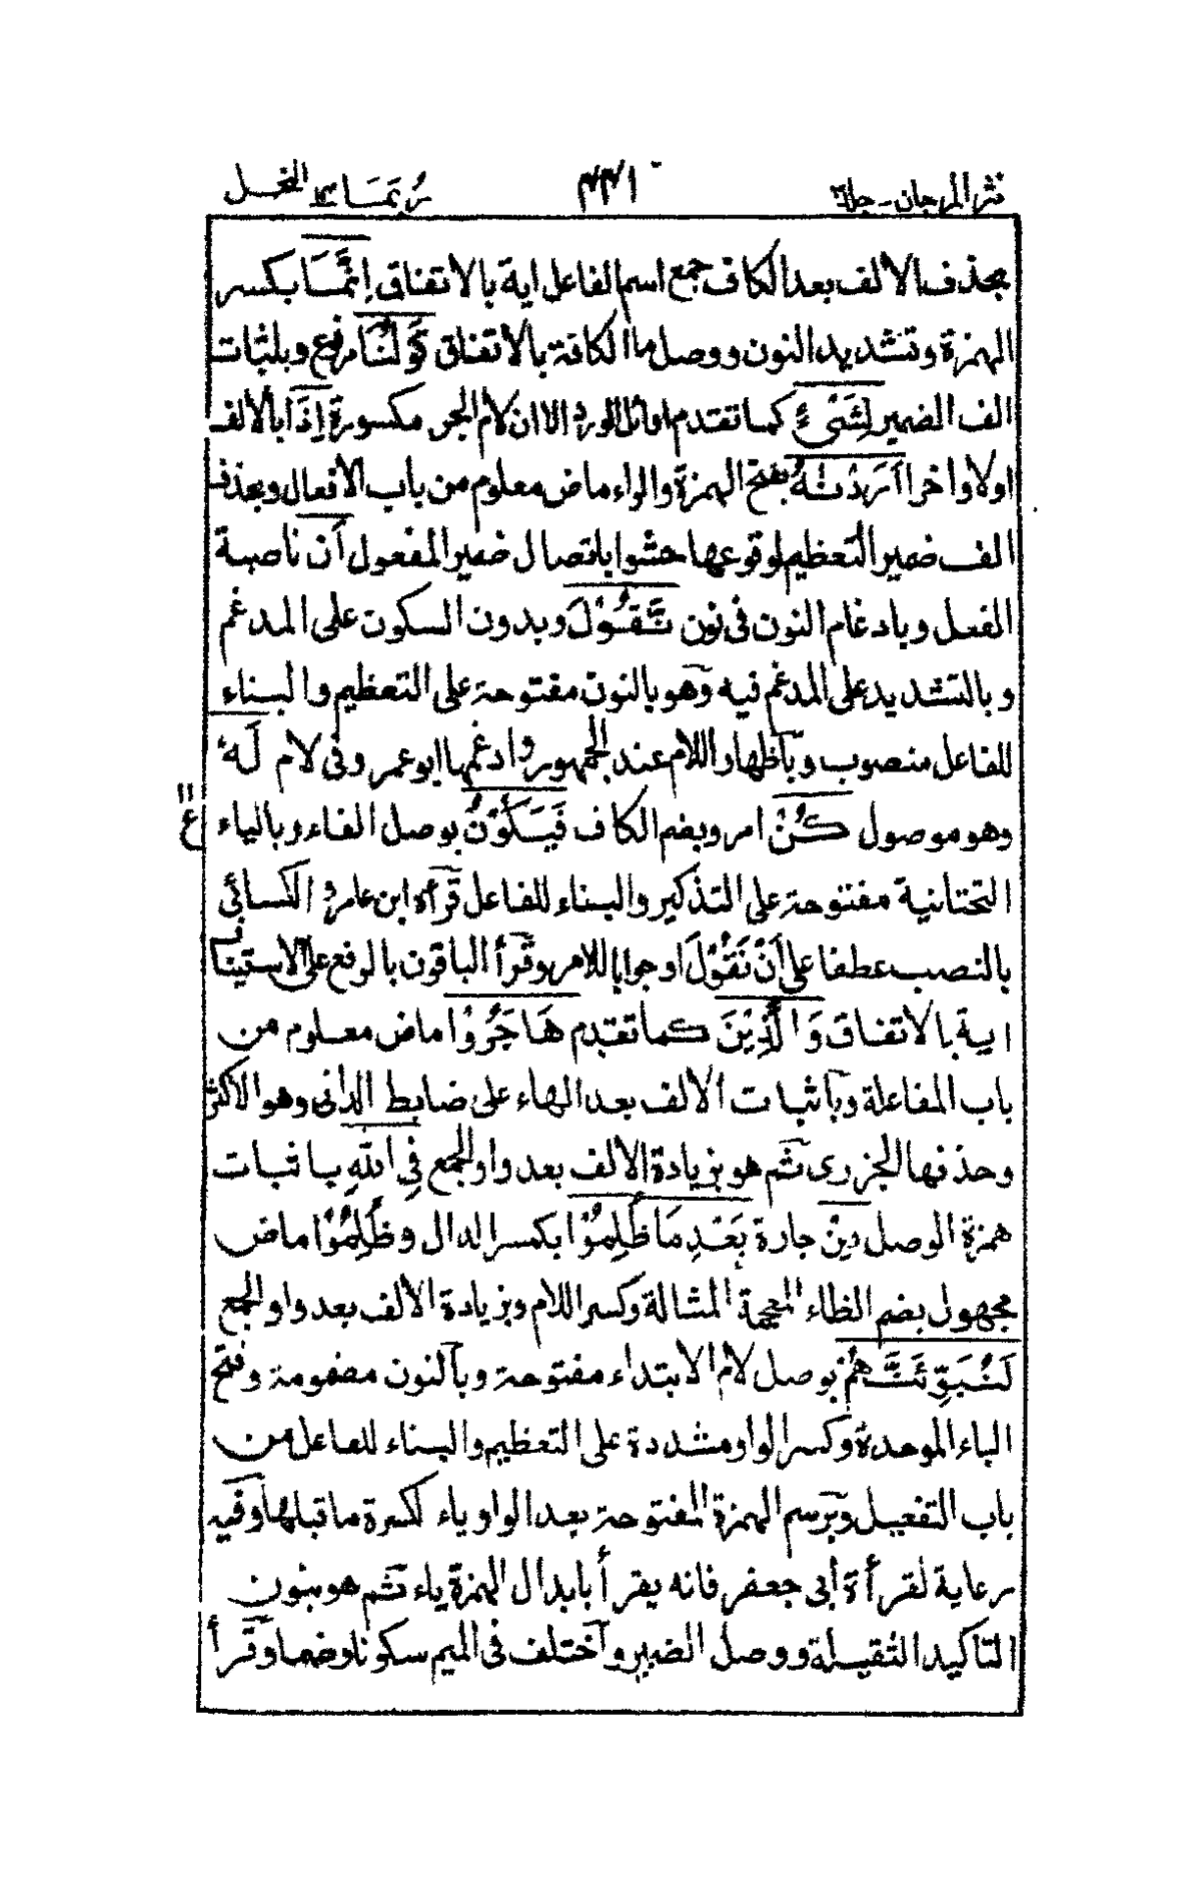 نثر المرجان - جلد
٣٣١
ربمــا ١٤ النحــل
بحذف الالف بعد الكاف جمع اسم الفاعل اية بالاتفاق اِنَّمَــا بكسر
الهمزة وتشديد النون ووصل ما الكافة بالاتفاق قَوْلُنَا رفع وباثبات
الف الضمير لِشَىْءٍ كما تقدم اوائل الورد الا ان لام الجر مكسورة اِذَا بالالف
اولا واخرا اَرَدْنٰهُ بفتح الهمزة والراء ماض معلوم من باب الافعال وبحذف
الف ضمير التعظيم لوقوعها حشوا باتصال ضمير المفعول اَن ناصبة
الفعل وبادغام النون فى نون نَّقُوْلَ وبدون السكون على المدغم
وبالتشديد على المدغم فيه وهو بالنون مفتوحة على التعظيم والبناء
للفاعل منصوب وباظهار اللام عند الجمهور وادغمها ابو عمرو فى لام لَهٗ
وهو موصول كُنْ امر وبضم الكاف فَيَكُوْنُ بوصل الفاء وبالياء
ع
التحتانية مفتوحة على التذكير والبناء للفاعل قرأه ابن عامر و الكسائى
بالنصب عطفا على اَنْ نَقُوْلَ او جوابا للامر وقرأ الباقون بالرفع على الاستيناف
اية بالاتفاق وَالَّذِيْنَ كما تقدم هَاجَرُوْا ماض معلوم من
باب المفاعلة وباثبات الالف بعد الهاء على ضابط الدانى وهو الاكثر
وحذفها الجزرى ثم هو بزيادة الالف بعد واو الجمع فِى اللهِ باثبات
همزة الوصل مِنْ جارة بَعْدِ مَا ظُلِمُوْا بكسر الدال وظُلِمُوْا ماض
مجهول بضم الظاء المعجمة المشالة وكسر اللام وبزيادة الالف بعد واو الجمع
لَنُبَوِّئَنَّــهُمْ بوصل لام الابتداء مفتوحة وبالنون مضمومة وفتح
الباء الموحدة وكسر الواو مشددة على التعظيم والبناء للفاعل من
باب التفعيل وبرسم الهمزة المفتوحة بعد الواو ياء لكسرة ما قبلها وفيه
رعاية لقرأة ابى جعفر فانه يقرأ بابدال الهمزة ياء ثم هو بنون
التاكيد الثقيلة ووصل الضمير واختلف فى الميم سكونا وضما وقرأ